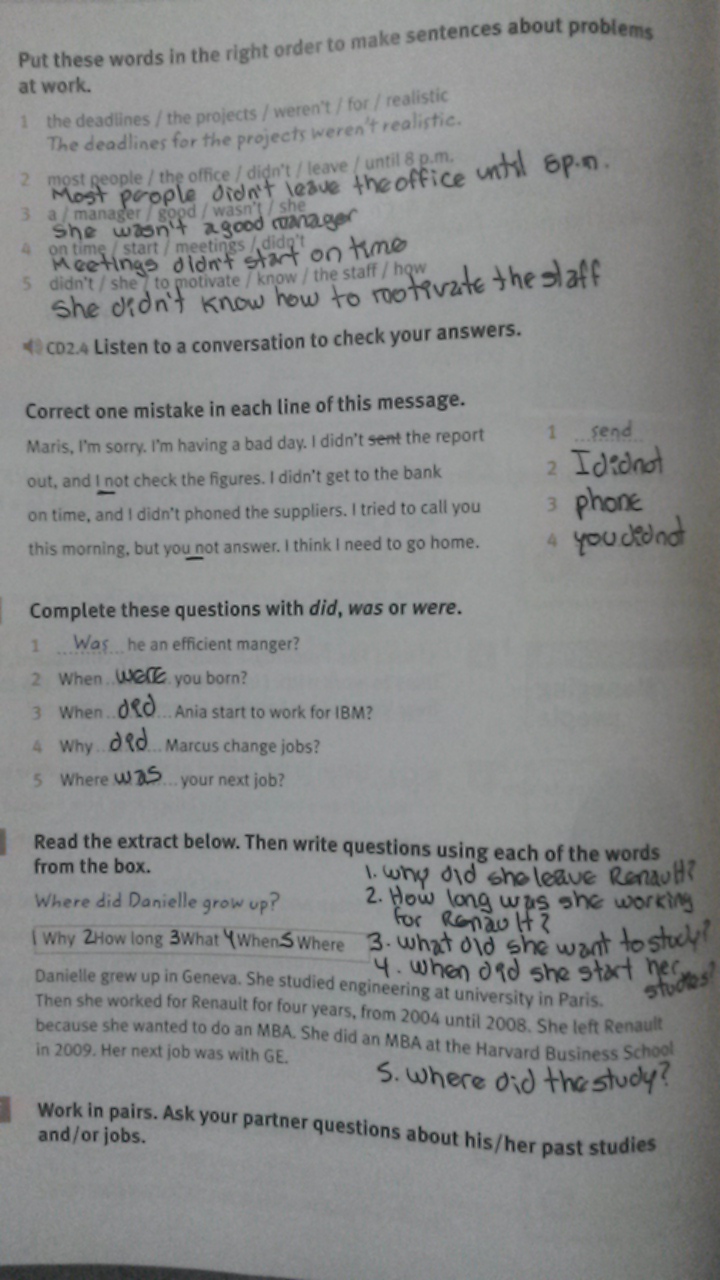 Put these words in the right order to make sentences about problems
at work.
1 the deadlines / the projects / weren't / for / realistic
The deadlines for the projects weren't realistic.
2 most people / the office / didn't / leave / until 8 p.m.
Most people didn't leave the office until 8p.m.
3 a / manager / good / wasn't / she
She wasn't a good manager
4 on time / start / meetings / didn't
Meetings didn't start on time
5 didn't / she / to motivate / know / the staff / how
She didn't know how to motivate the staff
CD2.4 Listen to a conversation to check your answers.
Correct one mistake in each line of this message.
Maris, I'm sorry. I'm having a bad day. I didn't sent the report 1 send
out, and I not check the figures. I didn't get to the bank 2 I did not
on time, and I didn't phoned the suppliers. I tried to call you 3 phone
this morning, but you not answer. I think I need to go home. 4 you did not
Complete these questions with did, was or were.
1 Was he an efficient manger?
2 When were you born?
3 When did Ania start to work for IBM?
4 Why did Marcus change jobs?
5 Where was your next job?
Read the extract below. Then write questions using each of the words
from the box.
Where did Danielle grow up?
1 Why 2 How long 3 What 4 When 5 Where
1. Why did she leave Renault?
2. How long was she working
for Renault?
3. What did she want to study?
4. When did she start her
studies?
Danielle grew up in Geneva. She studied engineering at university in Paris.
Then she worked for Renault for four years, from 2004 until 2008. She left Renault
because she wanted to do an MBA. She did an MBA at the Harvard Business School
in 2009. Her next job was with GE.
5. Where did the study?
Work in pairs. Ask your partner questions about his/her past studies
and/or jobs.